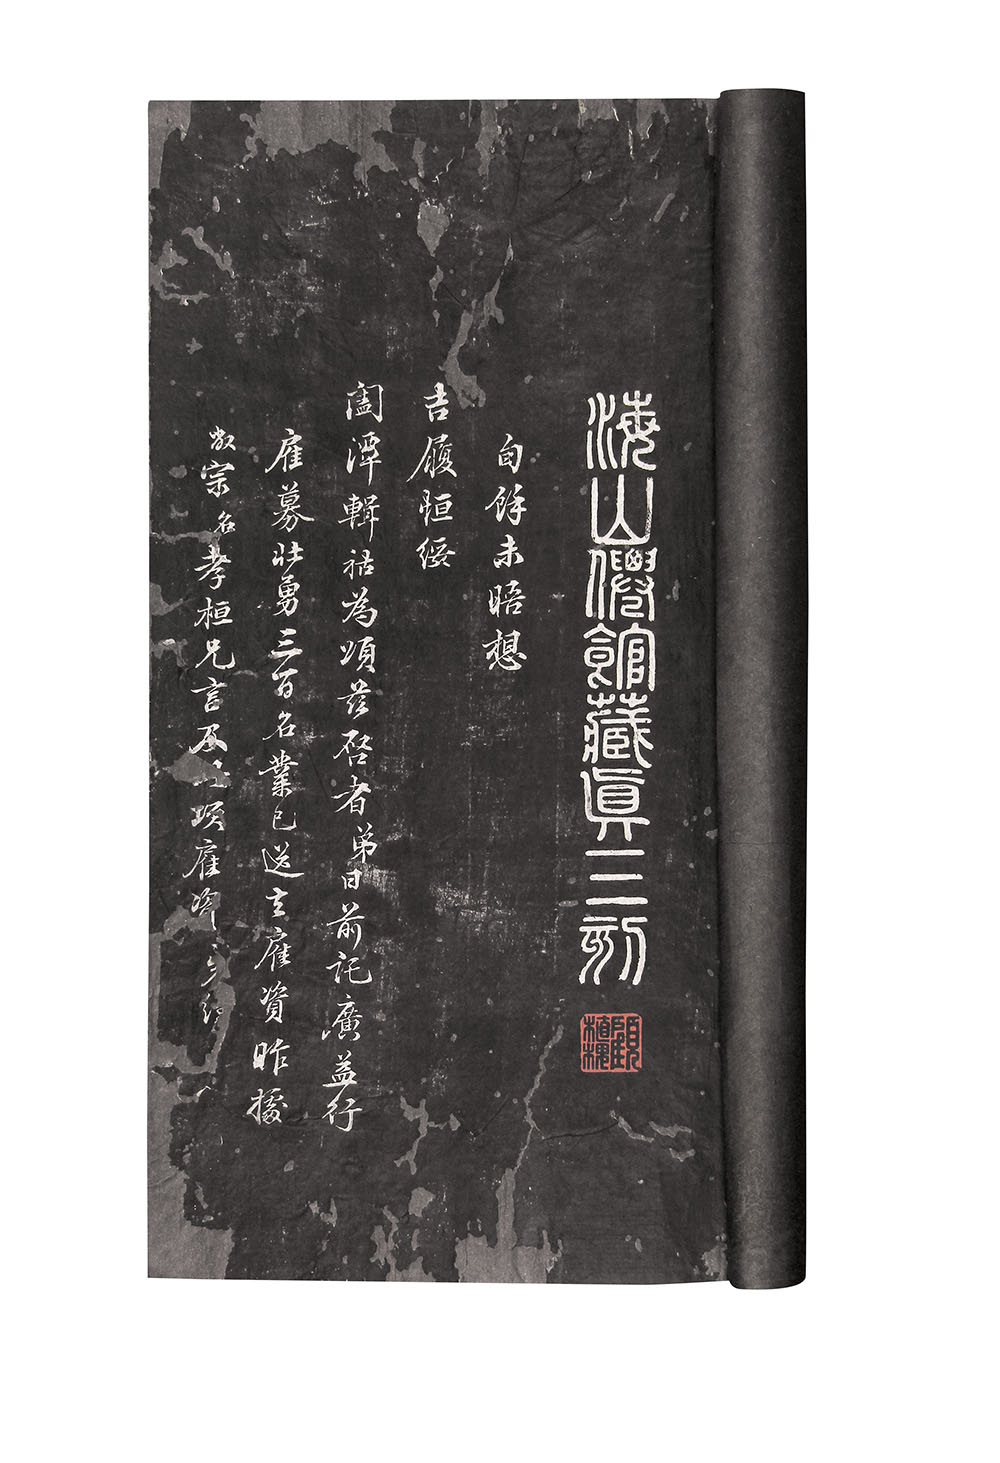 海山僊館藏真三刻
旬餘未晤想
吉履恒綏
闔潭輯祜為頌茲啓者弟日前託廣益行
雇募壯勇三百名業已送去雇資昨據
敝宗名孝桓兄言及項雇經